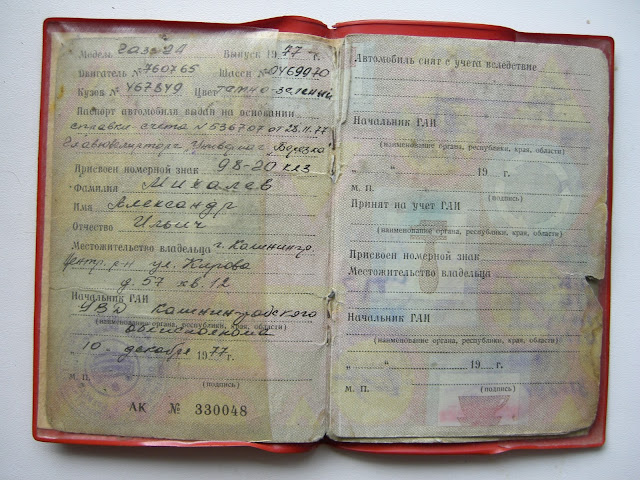 Модель Газ-24 Выпуск 1977 г.
Двигатель № 760765 Шасси № 0469970
Кузов № 467849 Цвет темно-зеленый
Паспорт автомобиля выдан на основании
справки-счета № 536707 от 28.11.77
Универмаг
Присвоен номерной знак 98-20 клз
Фамилия Михалев
Имя Александр
Отчество Ильич
Местожительство владельца г. Калинингр.
Центр. р-н ул. Кирова
д. 57 кв. 12
Начальник ГАИ
УВД Калининградского
(наименование органа, республики, края, области)
облисполкома
„10" декабря 1977 г.
М. П. (подпись)
АК № 330048
Автомобиль снят с учета вследствие
Начальник ГАИ
(наименование органа, республики, края, области)
„ " 19 г.
М. П. (подпись)
Принят на учет ГАИ
(наименование органа, республики, края, области)
Присвоен номерной знак
Местожительство владельца
Начальник ГАИ
(наименование органа, республики, края, области)
„ " 19 г.
М. П. (подпись)